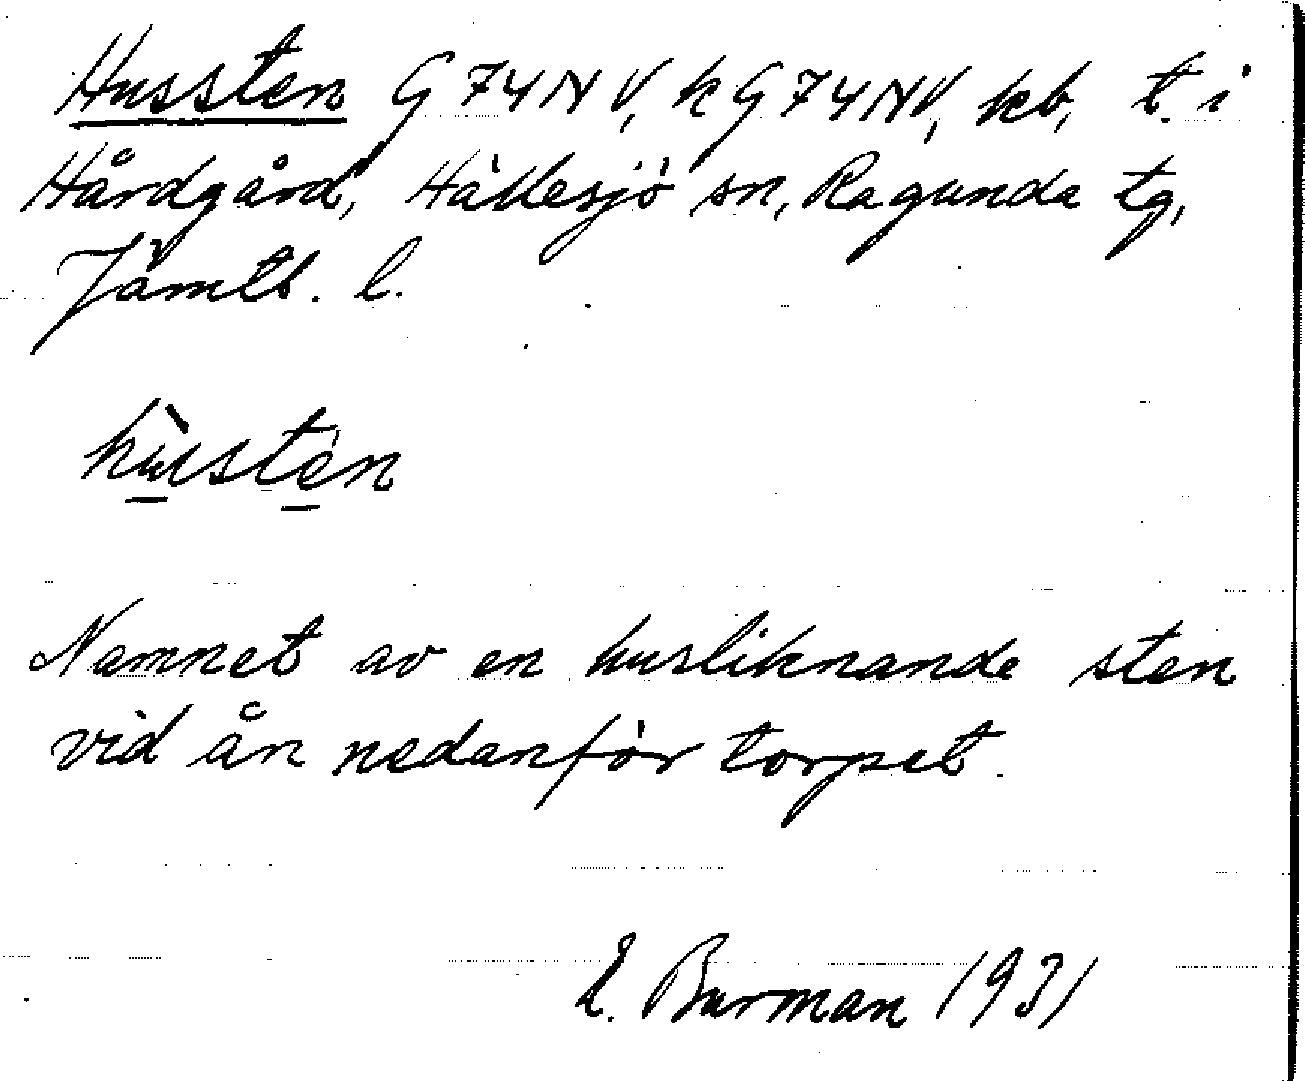 Hussten G74NV, k G74NV, kb, t. i
Hårdgård, Hällesjö sn, Ragunda tg,
Jämtl. l.
hùsten
Namnet av en husliknande sten
vid ån nedanför torpet.
E. Burman 1931